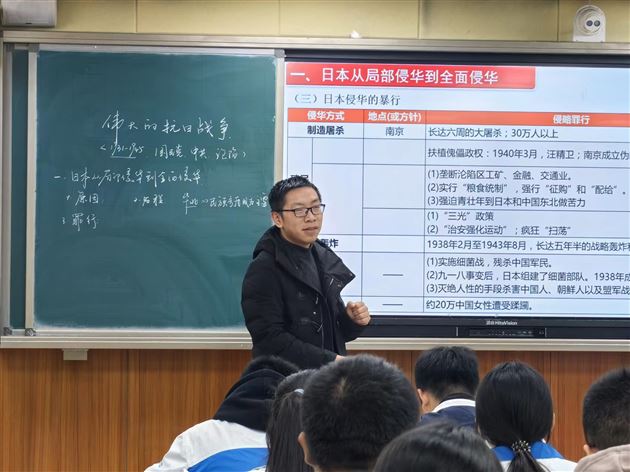 伟大的抗日战争
一、日本从局部侵华到全面侵华
1 原因
3 罪行
一、日本从局部侵华到全面侵华
（三）日本侵华的暴行
侵华方式 地点(或方针) 侵略罪行
制造屠杀 南京 长达六周的大屠杀；30万人以上
扶植傀儡政权：1940年3月，汪精卫；南京成立伪
(1)垄断沦陷区工矿、金融、交通业。
(2)实行“粮食统制”，强行“征购”和“配给”。
(3)强迫青壮年到日本和中国东北做苦力
(1)“三光”政策
(2)“治安强化运动”；疯狂“扫荡”
轰炸 1938年2月至1943年8月，长达五年半的战略轰炸
—— (1)实施细菌战，残杀中国军民。
(2)九一八事变后，日本组建了细菌部队。1938年
(3)灭绝人性的手段杀害中国人、朝鲜人以及盟军战
—— 约20万中国女性遭受蹂躏。
HiteVision